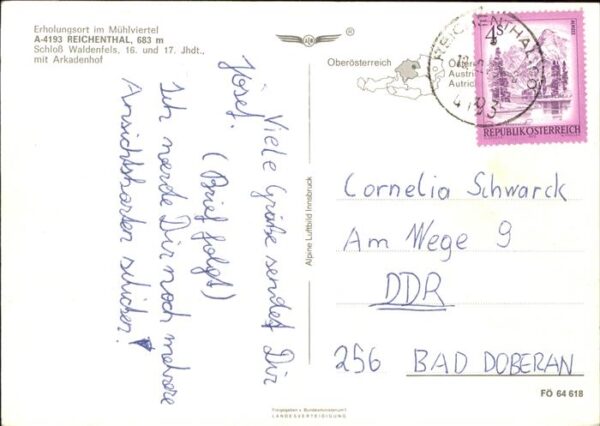 Erholungsort im Mühlviertel
A-4193 REICHENTHAL, 683 m
Schloß Waldenfels, 16. und 17. Jhdt.,
mit Arkadenhof
®
Oberösterreich
REICHENTHAL
4193
4S
REPUBLIK ÖSTERREICH
Viele Grüße sendet Dir
Josef.
(Brief folgt)
Ich werde Dir noch mehrere
Ansichtskarten schicken!
Alpine Luftbild Innsbruck
Cornelia Schwarck
Am Wege 9
DDR
256 BAD DOBERAN
FÖ 64 618
Freigegeben v. Bundesministerium f.
LANDESVERTEIDIGUNG